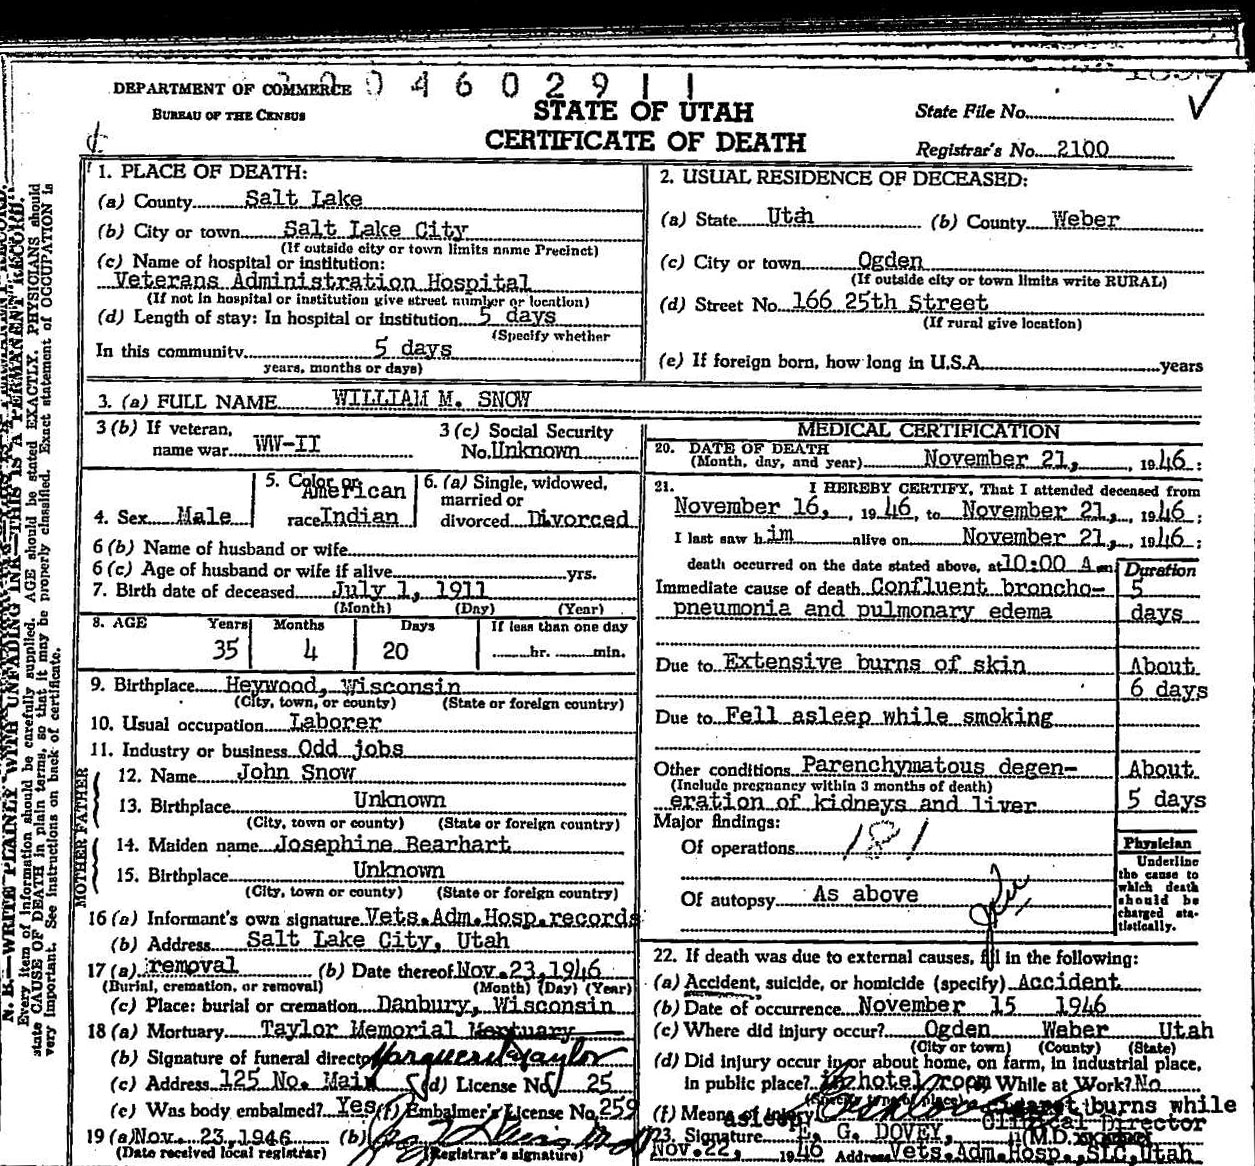 DEPARTMENT OF COMMERCE
BUREAU OF THE CENSUS
0 4 6 0 2 9 1 1
STATE OF UTAH
CERTIFICATE OF DEATH
State File No.
Registrar's No. 2100
N. B.—WRITE PLAINLY WITH UNFADING INK—THIS IS A PERMANENT RECORD.
Every item of information should be carefully supplied. AGE should be stated EXACTLY. PHYSICIANS should
state CAUSE OF DEATH in plain terms, so that it may be properly classified. Exact statement of OCCUPATION is
very important. See instructions on back of certificate.
1. PLACE OF DEATH:
(a) County Salt Lake
(b) City or town Salt Lake City
(If outside city or town limits name Precinct)
(c) Name of hospital or institution:
Veterans Administration Hospital
(If not in hospital or institution give street number or location)
(d) Length of stay: In hospital or institution 5 days
(Specify whether
In this community 5 days
years, months or days)
2. USUAL RESIDENCE OF DECEASED:
(a) State Utah (b) County Weber
(c) City or town Ogden
(If outside city or town limits write RURAL)
(d) Street No. 166 25th Street
(If rural give location)
(e) If foreign born, how long in U.S.A. years
3. (a) FULL NAME WILLIAM M. SNOW
3 (b) If veteran,
name war WW-II
3 (c) Social Security
No. Unknown
4. Sex Male
5. Color or
race American Indian
6. (a) Single, widowed,
married or
divorced Divorced
6 (b) Name of husband or wife
6 (c) Age of husband or wife if alive yrs.
7. Birth date of deceased July 1, 1911
(Month) (Day) (Year)
8. AGE Years Months Days If less than one day
35 4 20 hr. min.
9. Birthplace Heywood, Wisconsin
(City, town, or county) (State or foreign country)
10. Usual occupation Laborer
11. Industry or business Odd jobs
FATHER
12. Name John Snow
13. Birthplace Unknown
(City, town or county) (State or foreign country)
MOTHER
14. Maiden name Josephine Bearhart
15. Birthplace Unknown
(City, town or county) (State or foreign country)
16 (a) Informant's own signature Vets.Adm.Hosp.records
(b) Address Salt Lake City, Utah
17 (a) removal (b) Date thereof Nov.23,1946
(Burial, cremation, or removal) (Month) (Day) (Year)
(c) Place: burial or cremation Danbury, Wisconsin
18 (a) Mortuary Taylor Memorial Mortuary
(b) Signature of funeral director Marguerite Taylor
(c) Address 125 No. Main (d) License No. 25
(e) Was body embalmed? Yes (f) Embalmer's License No. 259
19 (a) Nov. 23,1946 (b)
(Date received local registrar) (Registrar's signature)
MEDICAL CERTIFICATION
20. DATE OF DEATH
(Month, day, and year) November 21, , 1946;
21. I HEREBY CERTIFY, That I attended deceased from
November 16, , 1946, to November 21, , 1946;
I last saw him alive on November 21, , 1946;
death occurred on the date stated above, at 10:00 A m
Duration
Immediate cause of death Confluent broncho- 5
pneumonia and pulmonary edema days
Due to Extensive burns of skin About
6 days
Due to Fell asleep while smoking
Other conditions Parenchymatous degen- About
(Include pregnancy within 3 months of death)
eration of kidneys and liver 5 days
Major findings:
Of operations 181
Of autopsy As above
Physician
Underline
the cause to
which death
should be
charged sta-
tistically.
22. If death was due to external causes, fill in the following:
(a) Accident, suicide, or homicide (specify) Accident
(b) Date of occurrence November 15 1946
(c) Where did injury occur? Ogden Weber Utah
(City or town) (County) (State)
(d) Did injury occur in or about home, on farm, in industrial place,
in public place? in hotel room While at Work? No
(Specify type of place)
(f) Means of injury Cigaret burns while
asleep
Clinical Director
23. Signature E. G. DOVEY, (M.D.
Nov.22, 1946 Address Vets.Adm.Hosp.,SLC,Utah